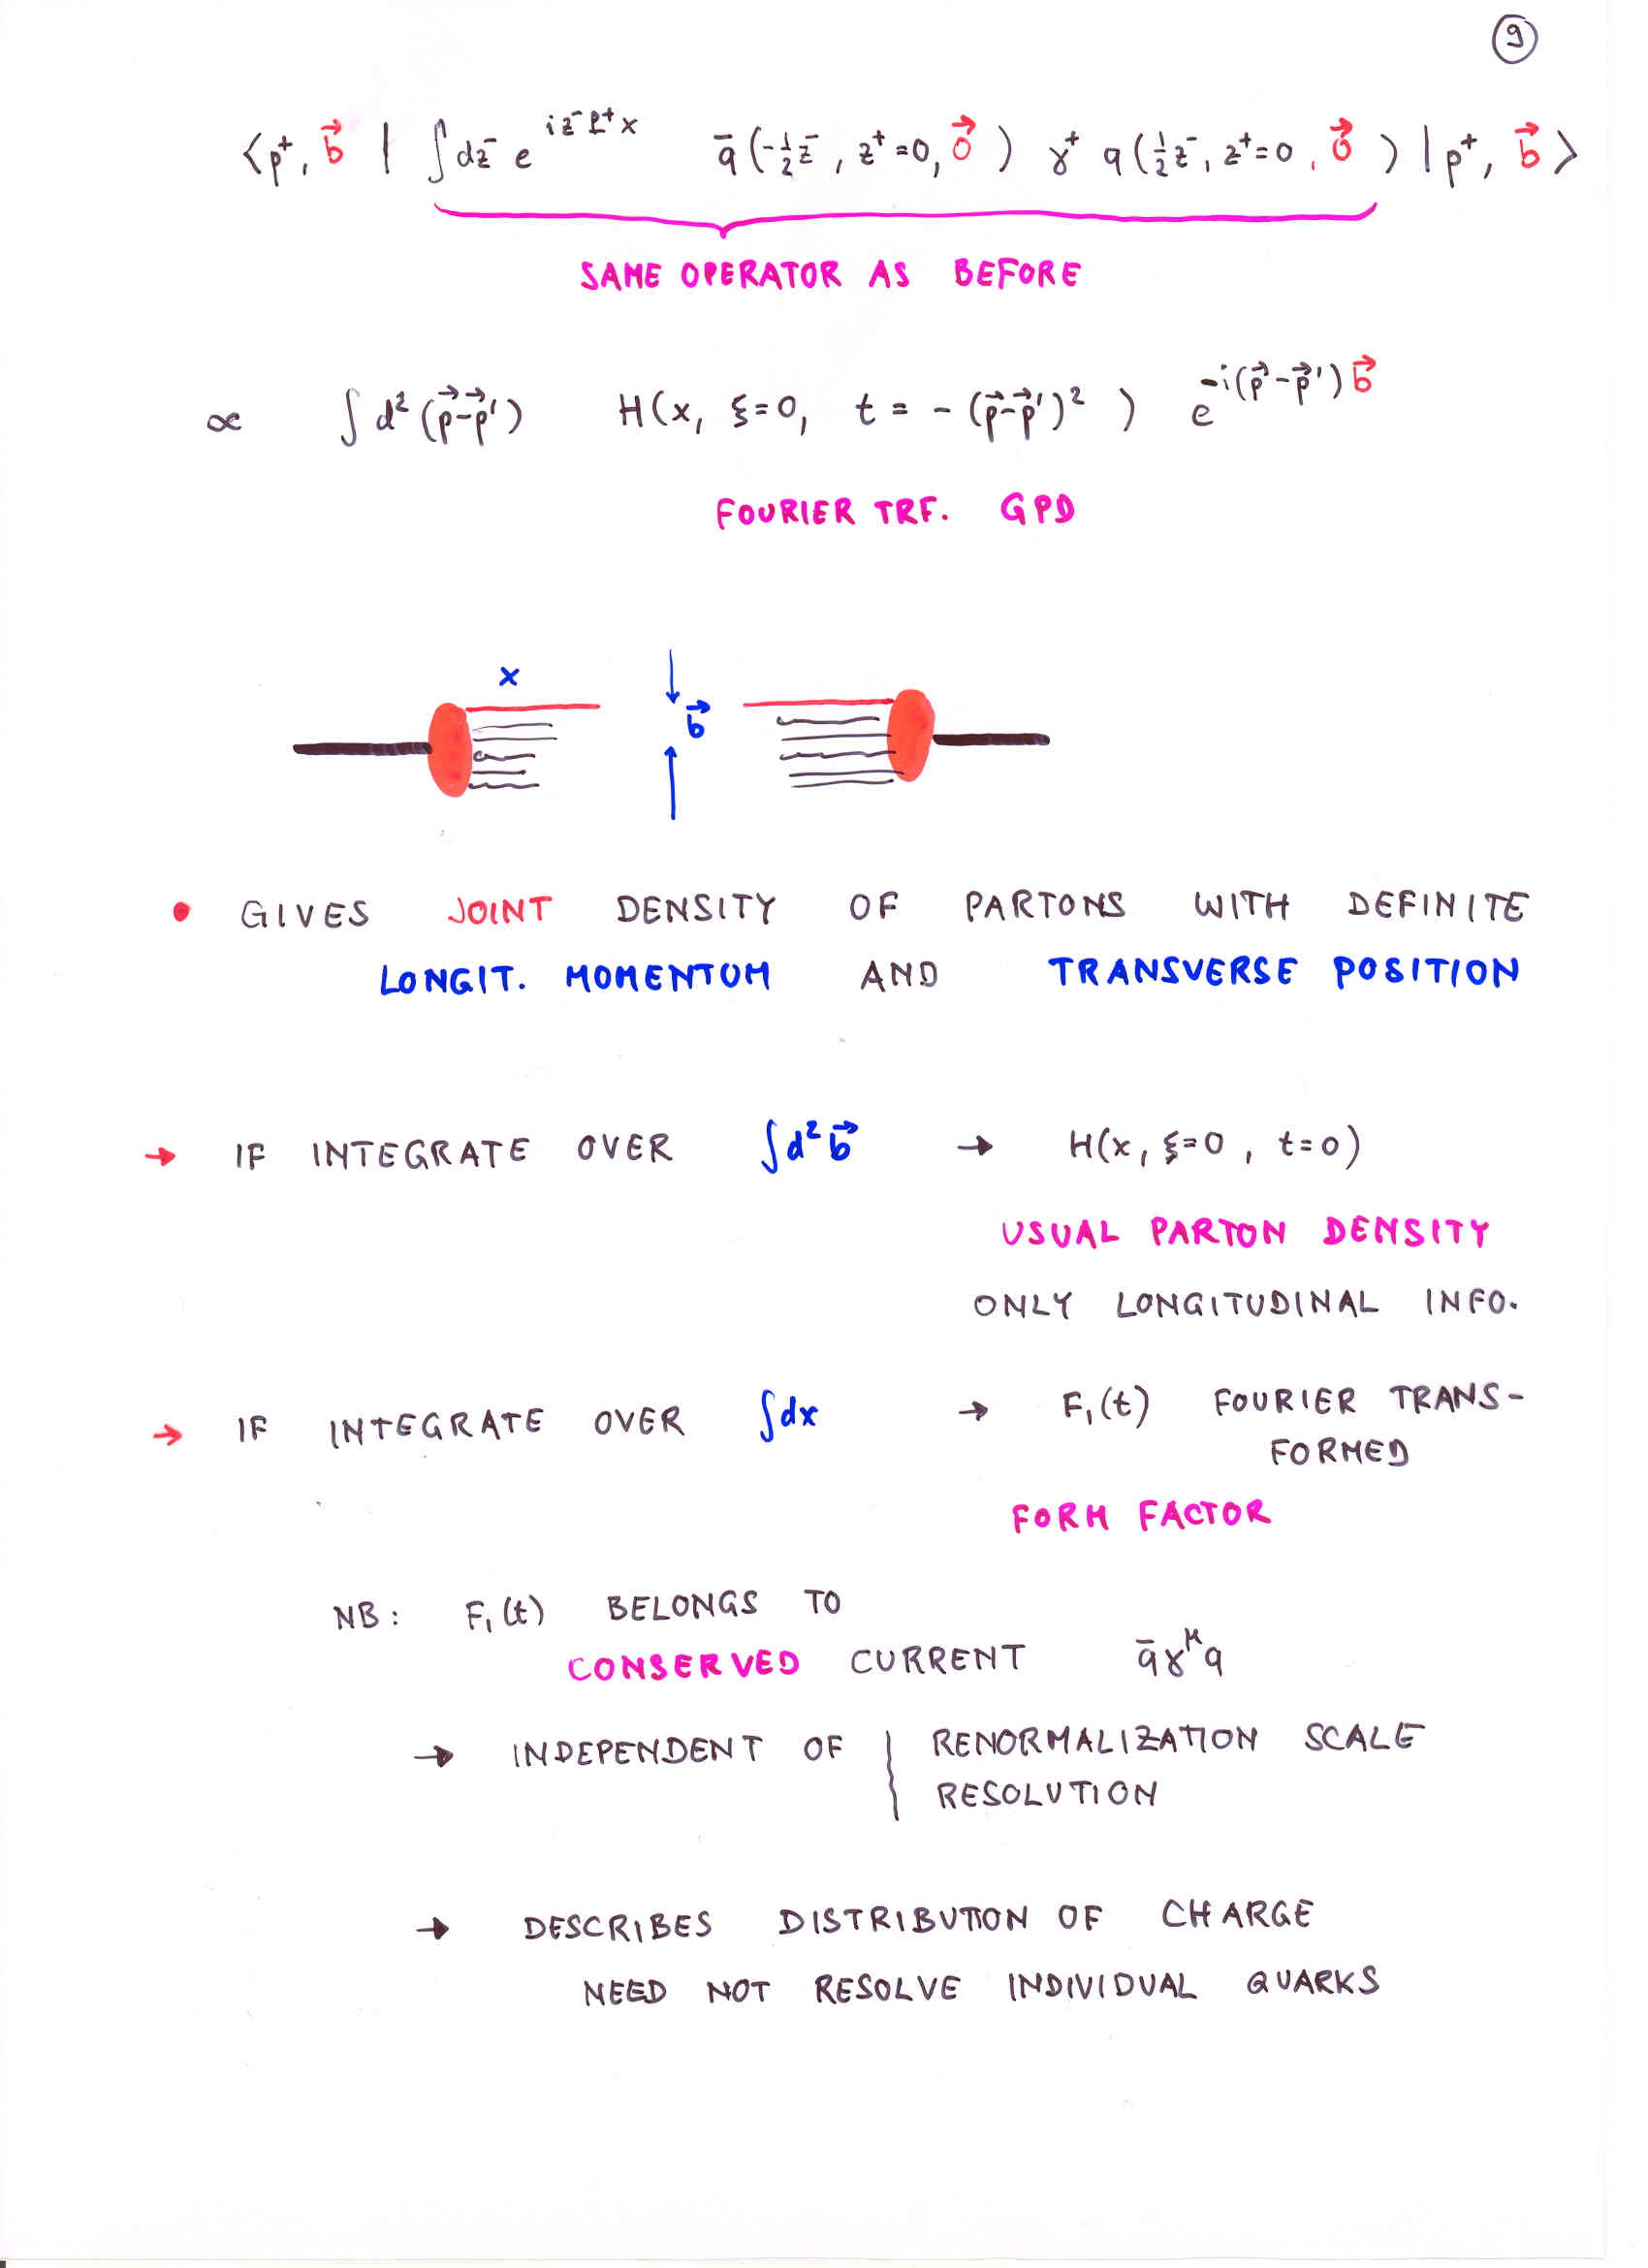 9
⟨p⁺, b⃗ | ∫dz⁻ e^{i z⁻ P⁺ x} q̄(-½z⁻, z⁺=0, 0⃗) γ⁺ q(½z⁻, z⁺=0, 0⃗) | p⁺, b⃗⟩
SAME OPERATOR AS BEFORE
∝ ∫d²(p⃗-p⃗') H(x, ξ=0, t = -(p⃗-p⃗')²) e^{-i(p⃗-p⃗')b⃗}
FOURIER TRF. GPD
x
b⃗
• GIVES JOINT DENSITY OF PARTONS WITH DEFINITE
LONGIT. MOMENTUM AND TRANSVERSE POSITION
→ IF INTEGRATE OVER ∫d²b⃗ → H(x, ξ=0, t=0)
USUAL PARTON DENSITY
ONLY LONGITUDINAL INFO.
→ IF INTEGRATE OVER ∫dx → F₁(t) FOURIER TRANS-
FORMED
FORM FACTOR
NB: F₁(t) BELONGS TO
CONSERVED CURRENT q̄γ^μq
→ INDEPENDENT OF { RENORMALIZATION SCALE
RESOLUTION
→ DESCRIBES DISTRIBUTION OF CHARGE
NEED NOT RESOLVE INDIVIDUAL QUARKS